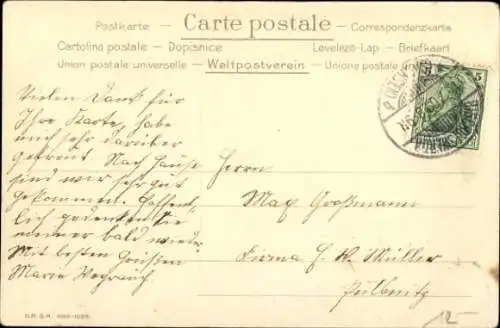 Postkarte — Carte postale — Correspondenzkarte
Cartolina postale — Dopisnice
Levelező-Lap — Briefkaart
Union postale universelle — Weltpostverein — Unione postale
5 5
Vielen Dank für
Ihre Karte, habe
mich sehr darüber
gefreut. Nach Hause
sind wir sehr gut
gekommen. Hoffent-
lich gedenken Sie
meiner bald wieder.
Mit besten Grüßen
Marie Weyrauch
Herrn
Max Großmann
Firma E. W. Müller
Pulsnitz
D.R.G.M.
12